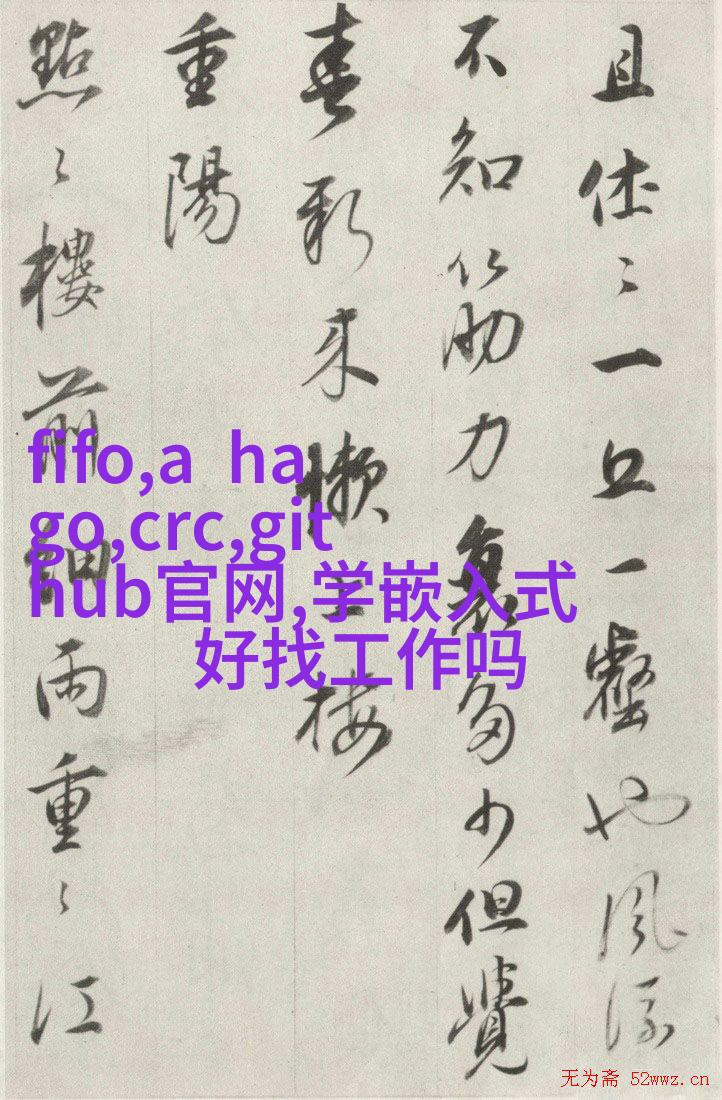 且休々一丘一壑也風流
不知筋力衰多少但覺
新来懶上楼
重陽
點々樓前細雨重々江
fifo,a ha
go,crc,git
hub官网,学嵌入式
好找工作吗
无为斋 52wwz.cn